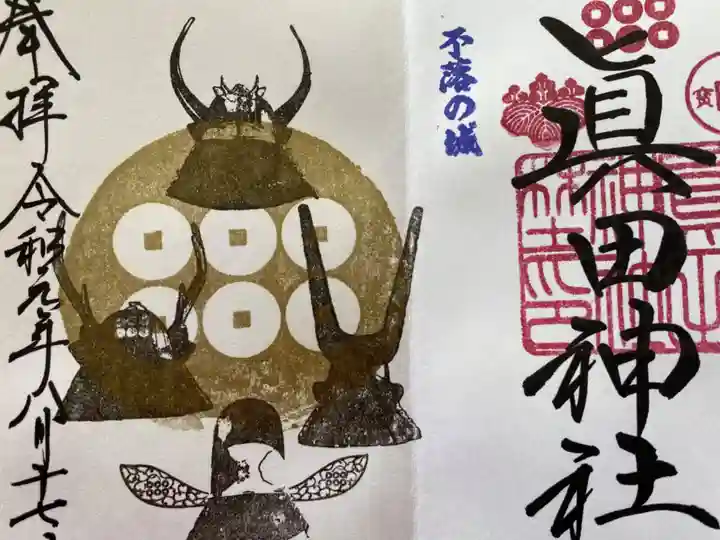 眞田神社
不落の城
奉拝 令和元年八月十七